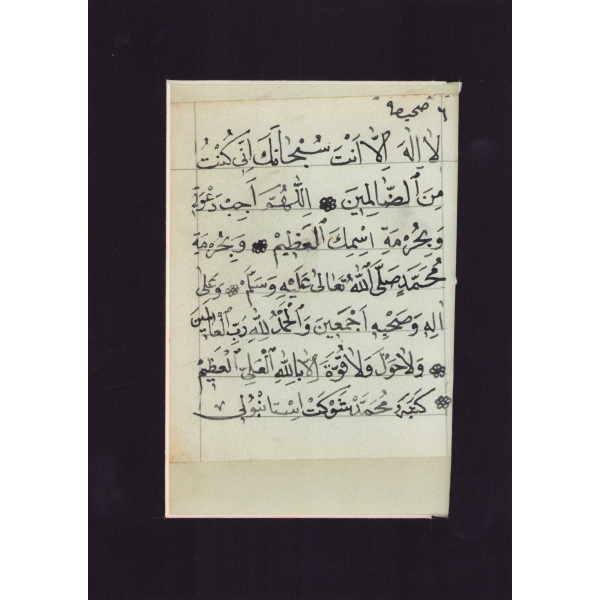 ٦ صحيفه
لَا اِلٰهَ اِلَّا اَنْتَ سُبْحَانَكَ اِنِّي كُنْتُ
مِنَ الظَّالِمِينَ اَللّٰهُمَّ اَجِبْ دَعْوَتِي
وَبِحُرْمَةِ اِسْمِكَ الْعَظِيمْ وَبِحُرْمَةِ
مُحَمَّدٍ صَلَّى اللّٰهُ تَعَالٰى عَلَيْهِ وَسَلَّمْ وَعَلٰى
اٰلِهِ وَصَحْبِهِ اَجْمَعِينَ وَالْحَمْدُ لِلّٰهِ رَبِّ الْعَالَمِينَ
وَلَاحَوْلَ وَلَا قُوَّةَ اِلَّا بِاللّٰهِ الْعَلِيِّ الْعَظِيمْ
كَتَبَهُ مُحَمَّدْ شَوْكَتْ اِسْتَانْبُولِي